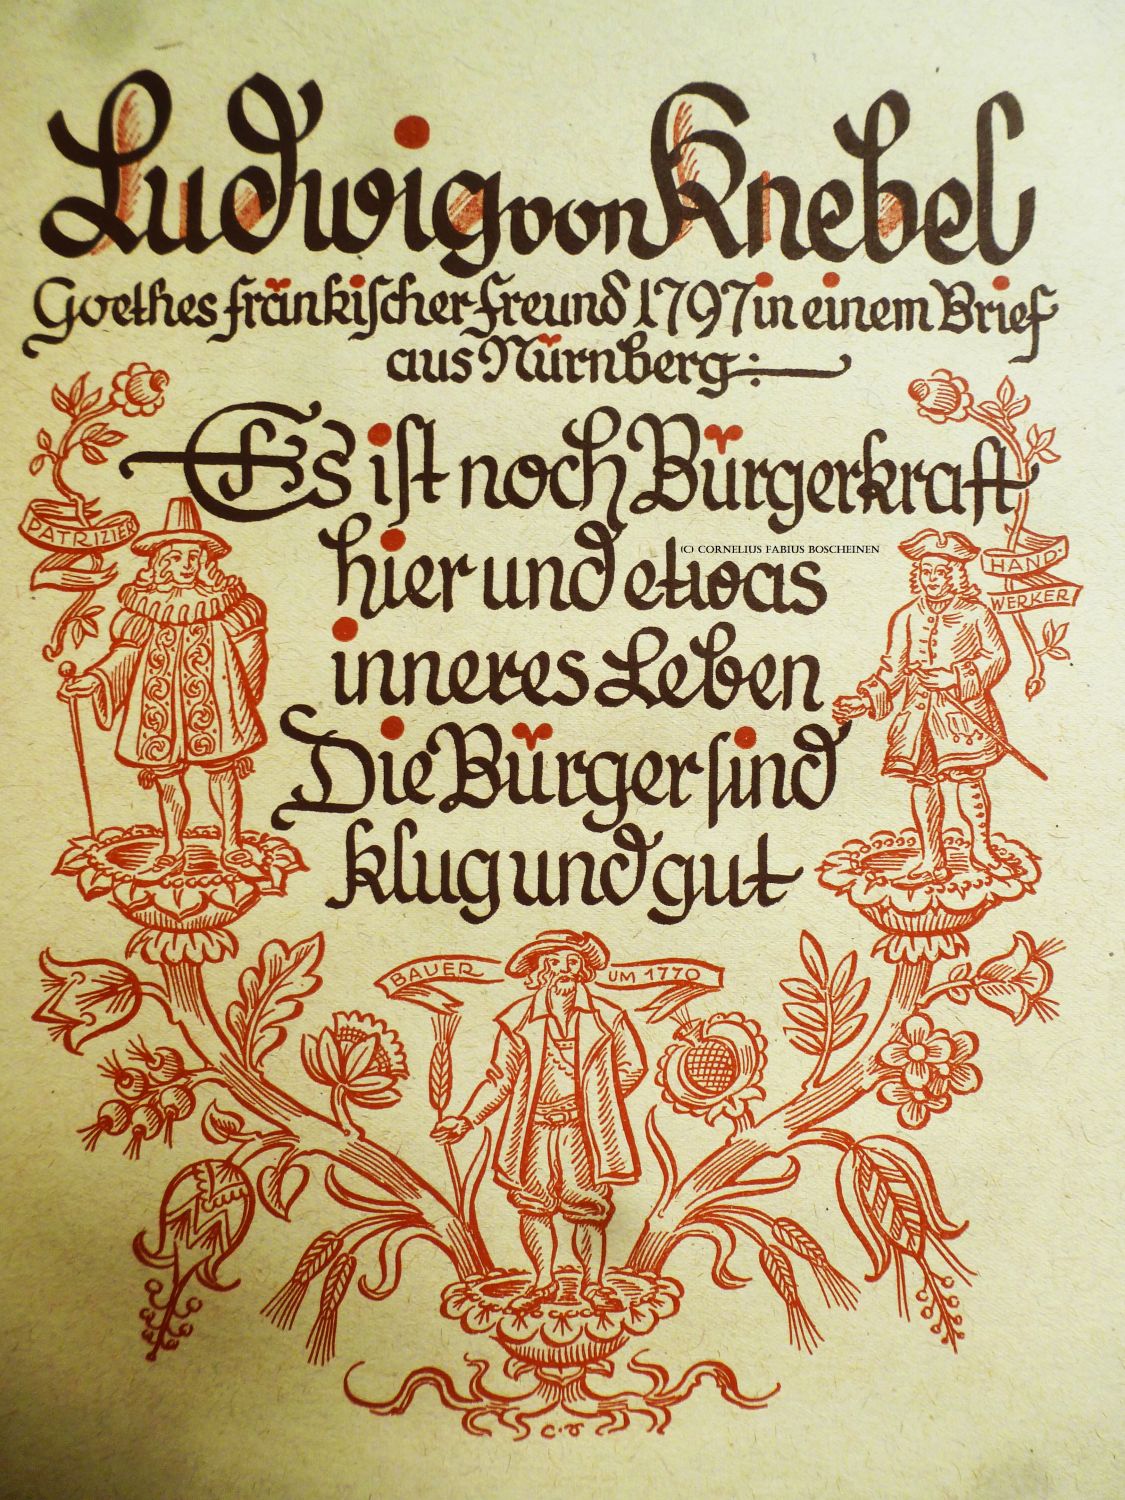 Ludwig von Knebel
Goethes fränkiſcher Freund 1797 in einem Brief
aus Nürnberg:
Es iſt noch Bürgerkraft
hier und etwas
inneres Leben
Die Bürger ſind
klug und gut
PATRIZIER
(C) CORNELIUS FABIUS BOSCHEINEN
HAND-
WERKER
BAUER UM 1770